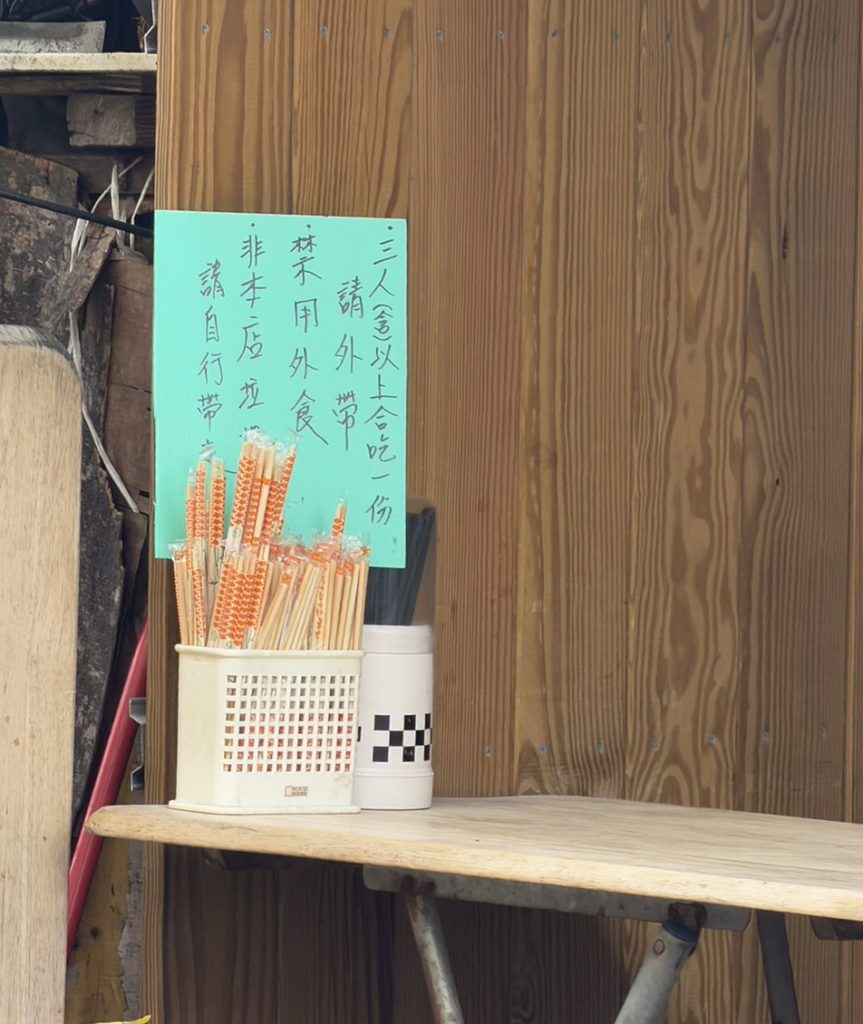 ·三人(含)以上合吃一份
請外帶
·禁用外食
·非本店垃
請自行帶